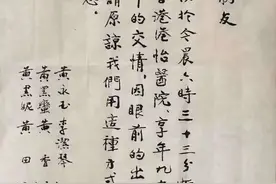 朋友
於今晨六時三十三分
港港怡醫院，享年九
的交情，因眼前的出
請原諒我們用這種方式
您。
黃永玉 李潔琴
黃黑蠻 黃香
黃黑妮 黃田